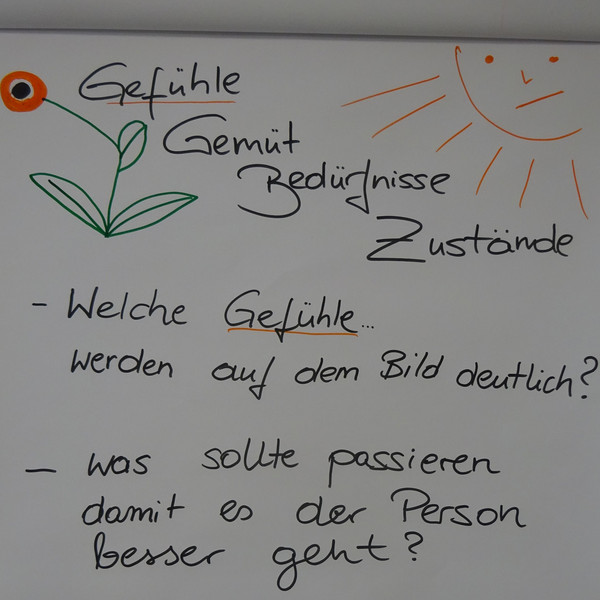 Gefühle
Gemüt
Bedürfnisse
Zustände
- Welche Gefühle...
werden auf dem Bild deutlich?
- was sollte passieren
damit es der Person
besser geht?